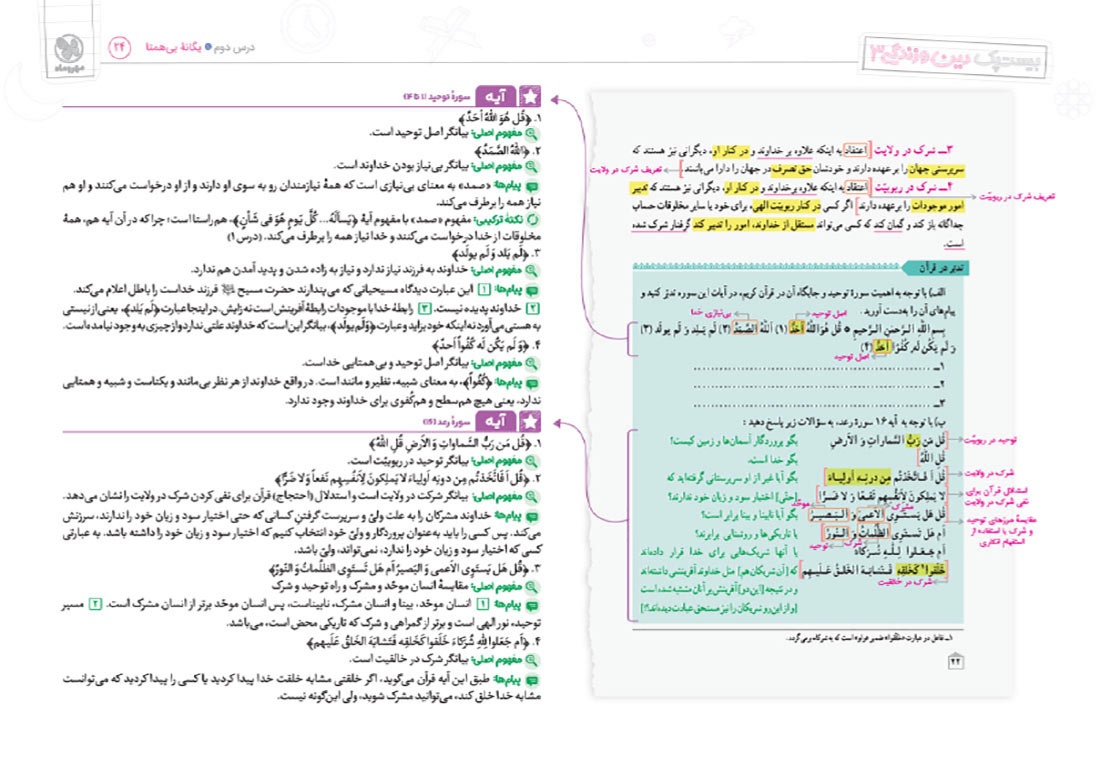 بیست‌پک دین و زندگی ۳
درس دوم • یگانهٔ بی‌همتا ۲۴
مهروماه
۳ـ شرک در ولایت [اعتقاد به اینکه علاوه بر خداوند و در کنار او، دیگرانی نیز هستند که
سرپرستی جهان را برعهده دارند و خودشان حق تصرف در جهان را دارا می‌باشند.]
تعریف شرک در ولایت
۴ـ شرک در ربوبیّت [اعتقاد به اینکه علاوه برخداوند و در کنار او، دیگرانی نیز هستند که تدبیر
تعریف شرک در ربوبیّت
امور موجودات را برعهده دارند.] اگر کسی در کنار ربوبیّت الهی، برای خود یا سایر مخلوقات حساب
جداگانه باز کند و گمان کند که کسی می‌تواند مستقل از خداوند، امور را تدبیر کند گرفتار شرک شده
است.
تدبر در قرآن
الف) با توجه به اهمیت سورهٔ توحید و جایگاه آن در قرآن کریم، در آیات این سوره تدبّر کنید و
پیام‌های آن را به‌دست آورید.
اصل توحید
بی‌نیازی خدا
بِسمِ اللّٰهِ الرَّحمٰنِ الرَّحیمِ * قُل هُوَ اللّٰهُ أَحَدٌ (۱) اَللّٰهُ الصَّمَدُ (۲) لَم یَلِد وَ لَم یولَد (۳)
وَ لَم یَکُن لَه کُفُوًا أَحَدٌ (۴)
اصل توحید
۱ـ
۲ـ
۳ـ
ب) با توجه به آیه ۱۶ سورهٔ رعد، به سؤالات زیر پاسخ دهید :
قُل مَن رَبُّ السَّماواتِ وَ الأَرضِ بگو پروردگار آسمان‌ها و زمین کیست؟
توحید در ربوبیّت
قُلِ اللّٰهُ بگو خدا است.
قُل أَ فَاتَّخَذتُم مِن دونِه أَولِیاءَ بگو آیا غیر از او سرپرستانی گرفته‌اید که
شرک در ولایت
لا یَملِکونَ لِأَنفُسِهِم نَفعًا وَ لا ضَرًّا [حتّی] اختیار سود و زیان خود ندارند؟
استدلال قرآن برای
نفی شرک در ولایت
مشرک
موحّد
قُل هَل یَستَوِی الأَعمی وَ البَصیرُ بگو آیا نابینا و بینا برابر است؟
أَم هَل تَستَوِی الظُّلُماتُ وَ النّورُ یا تاریکی‌ها و روشنایی برابرند؟
مقایسهٔ مرزهای توحید
و شرک با استفاده از
استفهام انکاری
شرک
توحید
أَم جَعَلوا لِلّٰهِ شُرَکاءَ یا آنها شریک‌هایی برای خدا قرار داده‌اند
خَلَقوا¹ کَخَلقِه فَتَشابَهَ الخَلقُ عَلَیهِم که [آن شریکان هم] مثل خداوند آفرینشی داشته‌اند
شرک در خالقیت
و در نتیجه [این دو] آفرینش بر آنان مشتبه شده است
[و از این رو شریکان را نیز مستحق عبادت دیده‌اند؟!]
۱ـ فاعل در عبارت «خَلَقوا» ضمیر «واو» است که به شرکاء برمی‌گردد.
۲۲
آیه سورهٔ توحید (۱ تا ۴)
۱. ﴿قُل هُوَ اللّٰهُ أَحَدٌ﴾
مفهوم اصلی: بیانگر اصل توحید است.
۲. ﴿اَللّٰهُ الصَّمَدُ﴾
مفهوم اصلی: بیانگر بی‌نیاز بودن خداوند است.
پیام‌ها: «صمد» به معنای بی‌نیازی است که همهٔ نیازمندان رو به سوی او دارند و از او درخواست می‌کنند و او هم
نیاز همه را برطرف می‌کند.
نکتهٔ ترکیبی: مفهوم «صمد» با مفهوم آیهٔ ﴿یَسأَلُهُ... کُلَّ یَومٍ هُوَ فی شَأنٍ﴾، هم‌راستا است؛ چرا که در آن آیه هم، همهٔ
مخلوقات از خدا درخواست می‌کنند و خدا نیاز همه را برطرف می‌کند. (درس ۱)
۳. ﴿لَم یَلِد وَ لَم یولَد﴾
مفهوم اصلی: خداوند به فرزند نیاز ندارد و نیاز به زاده شدن و پدید آمدن هم ندارد.
پیام‌ها: ۱ این عبارت دیدگاه مسیحیانی که می‌پندارند حضرت مسیح فرزند خداست را باطل اعلام می‌کند.
۲ خداوند پدیده نیست. ۳ رابطهٔ خدا با موجودات رابطهٔ آفرینش است نه زایش. در اینجا عبارت ﴿لَم یَلِد﴾، یعنی از نیستی
به هستی می‌آورد نه اینکه خود بزاید و عبارت ﴿وَلَم یولَد﴾، بیانگر این است که خداوند علتی ندارد و از چیزی به وجود نیامده است.
۴. ﴿وَ لَم یَکُن لَه کُفُوًا أَحَدٌ﴾
مفهوم اصلی: بیانگر اصل توحید و بی‌همتایی خداست.
پیام‌ها: ﴿کُفُوًا﴾، به معنای شبیه، نظیر و مانند است. در واقع خداوند از هر نظر بی‌مانند و یکتاست و شبیه و همتایی
ندارد، یعنی هیچ هم‌سطح و هم‌کُفوی برای خداوند وجود ندارد.
آیه سورهٔ رعد (۱۶)
۱. ﴿قُل مَن رَبُّ السَّماواتِ وَ الأَرضِ قُلِ اللّٰهُ﴾
مفهوم اصلی: بیانگر توحید در ربوبیّت است.
۲. ﴿قُل أَ فَاتَّخَذتُم مِن دونِه أَولِیاءَ لا یَملِکونَ لِأَنفُسِهِم نَفعاً وَ لا ضَرًّا﴾
مفهوم اصلی: بیانگر شرکت در ولایت است و استدلال (احتجاج) قرآن برای نفی کردن شرک در ولایت را نشان می‌دهد.
پیام‌ها: خداوند مشرکان را به علت ولیّ و سرپرست گرفتنِ کسانی که حتی اختیار سود و زیان خود را ندارند، سرزنش
می‌کند. پس کسی را باید به‌عنوان پروردگار و ولیّ خود انتخاب کنیم که اختیار سود و زیان خود را داشته باشد. به عبارتی
کسی که اختیار سود و زیان خود را ندارد، نمی‌تواند، ولیّ باشد.
۳. ﴿قُل هَل یَستَوِی الأَعمی وَ البَصیرُ أَم هَل تَستَوِی الظُّلُماتُ وَ النّورُ﴾
مفهوم اصلی: مقایسهٔ انسان موحّد و مشرک و راه توحید و شرک
پیام‌ها: ۱ انسان موحّد، بینا و انسان مشرک، نابیناست، پس انسان موحّد برتر از انسان مشرک است. ۲ مسیر
توحید، نور الهی است و برتر از گمراهی و شرک که تاریکی محض است، می‌باشد.
۴. ﴿أَم جَعَلوا لِلّٰهِ شُرَکاءَ خَلَقوا کَخَلقِه فَتَشابَهَ الخَلقُ عَلَیهِم﴾
مفهوم اصلی: بیانگر شرک در خالقیت است.
پیام‌ها: طبق این آیه قرآن می‌گوید، اگر خلقتی مشابه خلقت خدا پیدا کردید یا کسی را پیدا کردید که می‌توانست
مشابه خدا خلق کند، می‌توانید مشرک شوید، ولی این‌گونه نیست.